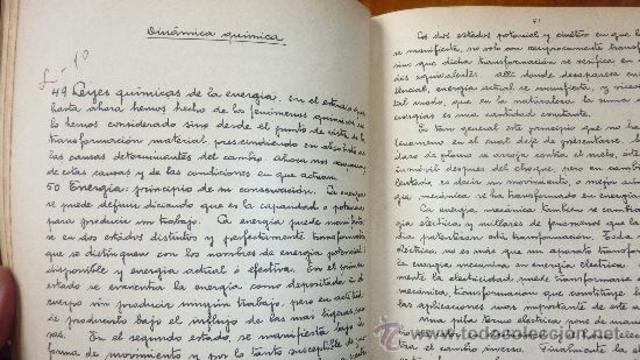 Dinámica química
L-1º
49 Leyes químicas de la energía. En el estudio que
hasta ahora hemos hecho de los fenómenos químicos, no
lo hemos considerado sino desde el punto de vista de la
transformación material prescindiendo en absoluto de
las causas determinantes del cambio. Ahora nos
de estas causas y de las condiciones en que actúan.
50 Energía: principio de su conservación. La energía
se puede definir diciendo que es la capacidad o potencia
para producir un trabajo. La energía puede manifestar
se en dos estados distintos y perfectamente transformables
que se distinguen con los nombres de energía potencial
disponible y energía actual ó efectiva. En el primer
estado se encuentra la energía como depositada en el
cuerpo sin producir ningún trabajo, pero en actitud
de producirlo bajo el influjo de las mas ligeras cau
sas. En el segundo estado, se manifiesta bajo la
forma de movimiento y por lo tanto susceptible de
41
Los dos estados potencial y cinético en que la
se manifiesta, no solo son recíprocamente transfor
sino que dicha transformación se verifica en
des equivalentes. Allí donde desaparece en
tencial, energía actual se manifiesta, y vice
tal modo, que en la naturaleza la suma
energías es una cantidad constante.
Es tan general este principio que no hay
fenómeno en el cual deje de presentarse.
dazo de plomo se arroja contra el suelo, éste
inmóvil despues del choque, pero en cambio
lentaria es decir un movimiento, o mejor aún
gía mecánica se ha transformado en energía
La energía mecánica tambien se cambia
gía eléctrica y millares de fenómenos que la
dia patentizan esta transformación. Toda
eléctrica, no es mas que un aparato transfor
la energía mecánica en energía eléctrica.
mente la electricidad puede transformarse
mecánica, transformación que constituye
las aplicaciones mas importante de este
Una pila termo eléctrica por de
el camino inverso. Finalmente la
todocoleccion.net